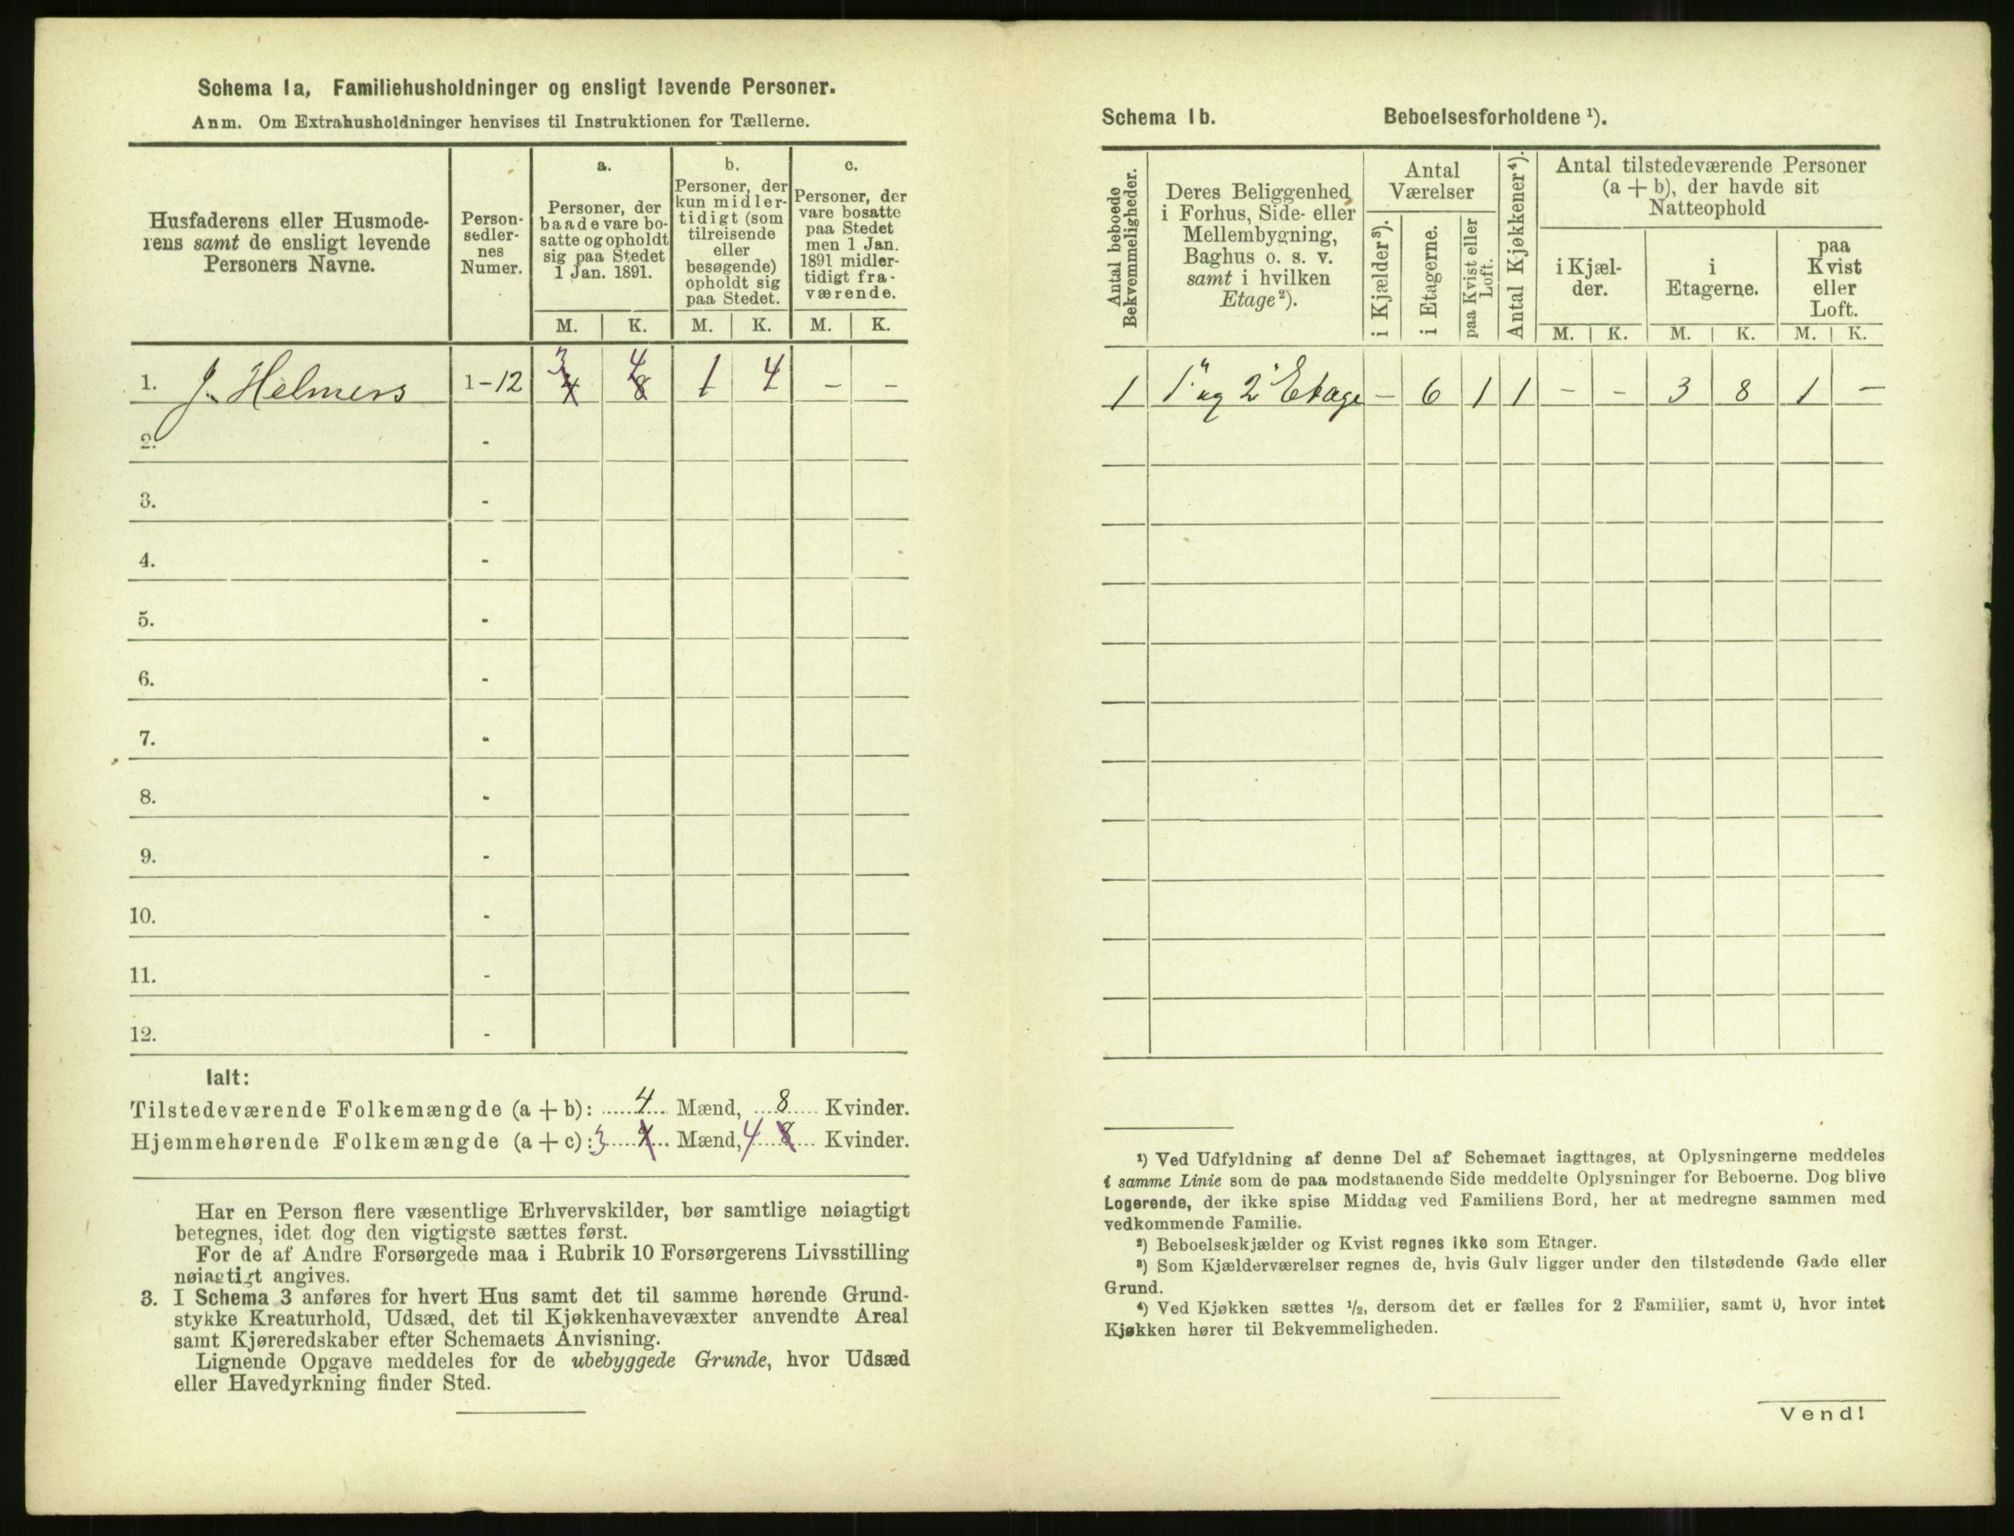 Schema 1a, Familiehusholdninger og ensligt levende Personer.
Anm. Om Extrahusholdninger henvises til Instruktionen for Tællerne.
Husfaderens eller Husmode-
rens samt de ensligt levende
Personers Navne.
Person-
sedler-
nes
Numer.
a.
Personer, der
baade vare bo-
satte og opholdt
sig paa Stedet
1 Jan. 1891.
b.
Personer, der
kun midler-
tidigt (som
tilreisende
eller
besøgende)
opholdt sig
paa Stedet.
c.
Personer, der
vare bosatte
paa Stedet
men 1 Jan.
1891 midler-
tidigt fra-
værende.
M. K. M. K. M. K.
3 4
1. J. Helmers 1-12 4 8 1 4 - -
2. -
3. -
4. -
5. -
6. -
7. -
8. -
9. -
10. -
11. -
12. -
Ialt:
Tilstedeværende Folkemængde (a + b): 4 Mænd, 8 Kvinder.
Hjemmehørende Folkemængde (a + c): 3 4 Mænd, 4 8 Kvinder.
Har en Person flere væsentlige Erhvervskilder, bør samtlige nøiagtigt
betegnes, idet dog den vigtigste sættes først.
For de af Andre Forsørgede maa i Rubrik 10 Forsørgerens Livsstilling
nøiagtigt angives.
3. I Schema 3 anføres for hvert Hus samt det til samme hørende Grund-
stykke Kreaturhold, Udsæd, det til Kjøkkenhavevæxter anvendte Areal
samt Kjøreredskaber efter Schemaets Anvisning.
Lignende Opgave meddeles for de ubebyggede Grunde, hvor Udsæd
eller Havedyrkning finder Sted.
Schema 1b. Beboelsesforholdene ¹).
Antal beboede
Bekvemmeligheder.
Deres Beliggenhed
i Forhus, Side- eller
Mellembygning,
Baghus o. s. v.
samt i hvilken
Etage ²).
Antal
Værelser
i Kjælder ³).
i Etagerne.
paa Kvist eller
Loft.
Antal Kjøkkener ⁴).
Antal tilstedeværende Personer
(a + b), der havde sit
Natteophold
i Kjæl-
der.
i
Etagerne.
paa
Kvist
eller
Loft.
M. K. M. K. M. K.
1 1" og 2" Etage - 6 1 1 - - 3 8 1 -
¹) Ved Udfyldning af denne Del af Schemaet iagttages, at Oplysningerne meddeles
i samme Linie som de paa modstaaende Side meddelte Oplysninger for Beboerne. Dog blive
Logerende, der ikke spise Middag ved Familiens Bord, her at medregne sammen med
vedkommende Familie.
²) Beboelseskjælder og Kvist regnes ikke som Etager.
³) Som Kjælderværelser regnes de, hvis Gulv ligger under den tilstødende Gade eller
Grund.
⁴) Ved Kjøkken sættes ½, dersom det er fælles for 2 Familier, samt 0, hvor intet
Kjøkken hører til Bekvemmeligheden.
Vend!